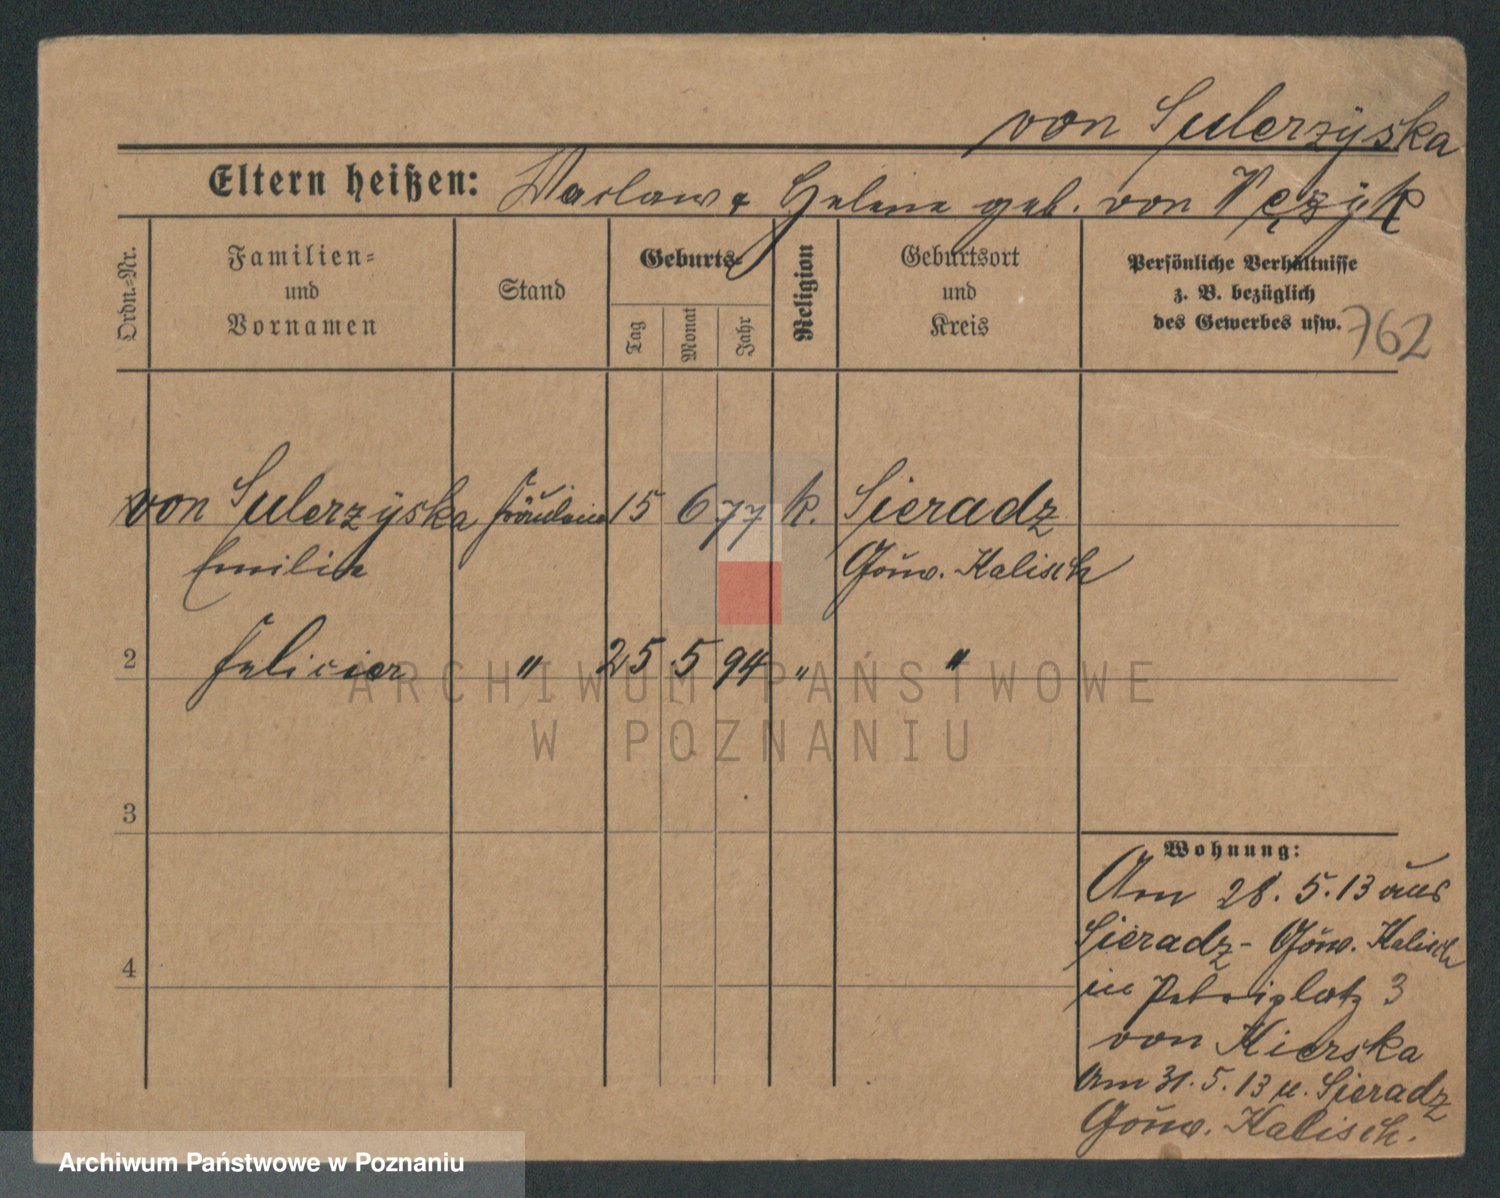 von Sulerzÿska
Eltern heißen: Waclaw & Helene geb. von Węzÿk
Ordn.-Nr.
Familien-
und
Vornamen
Stand
Geburts-
Tag
Monat
Jahr
Religion
Geburtsort
und
Kreis
Persönliche Verhältnisse
z. B. bezüglich
des Gewerbes usw.
762
von Sulerzÿska Fräulein 15 6 77 k. Sieradz
Emilie Gouw. Kalisch
2 Felicier " 25 5 94 " "
3
4
Wohnung:
Am 28. 5. 13 aus
Sieradz - Gouw. Kalisch
in Petriplatz 3
von Kierska
Am 31. 5. 13 n. Sieradz
Gouw. Kalisch.
ARCHIWUM PAŃSTWOWE
W POZNANIU
Archiwum Państwowe w Poznaniu